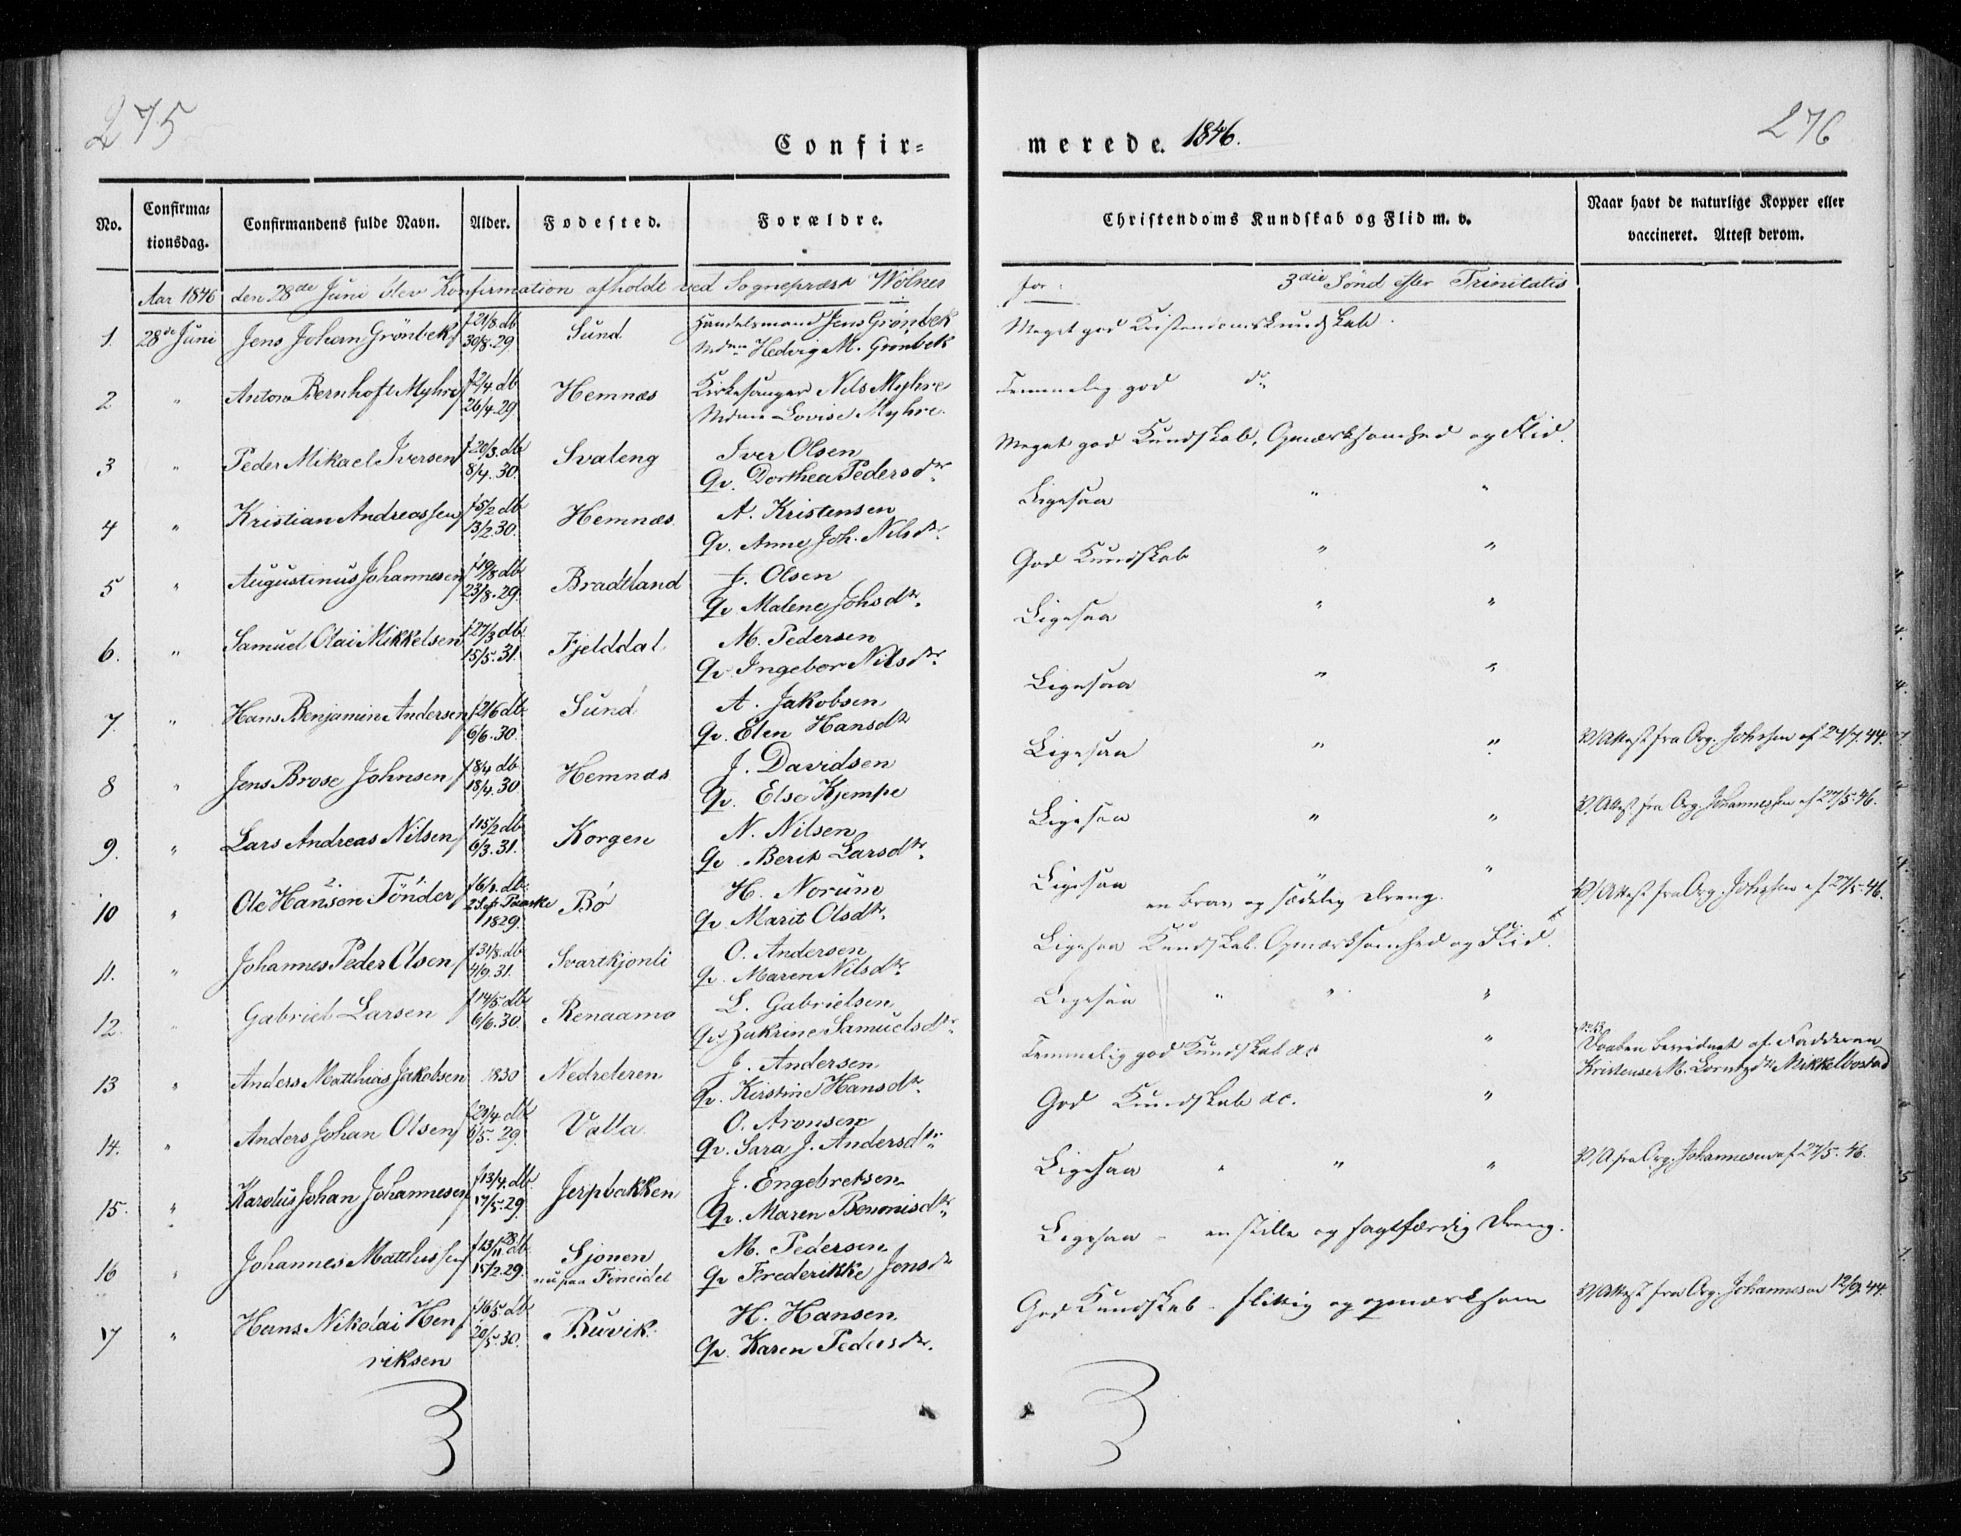 275
276
Confir=
merede. 1846.
No.
Confirma=
tionsdag.
Confirmandens fulde Navn.
Alder.
Fødested.
Forældre.
Christendoms Kundskab og Flid m. v.
Naar havt de naturlige Kopper eller
vaccineret. Attest derom.
Aar 1846 den 28de Juni blev Konfirmation afholdt ved Sognepræst Wolner
for: 3die Sønd. efter Trinitatis
1. 28de Juni Jens Johan Grønbek f 21/8. db 30/8. 29. Sund Handelsmand Jens Grønbek
Mdme Hedvig M. Grønbek
Meget god Kristendomskundskab.
2 " Anton Bernhoft Myhre f 2/4. db 26/4. 29 Hemnæs Kirkesanger Nils Myhre
Mdme Lovise Myhre.
Temmelig god do
3 " Peder Mikael Iversen f 20/3. db 8/4. 30. Svaleng Iver Olsen
Qv. Dorthea Pedersdtr.
Meget god Kundskab, Opmærksomhed og Flid.
4 " Kristian Andreassen f 5/2 db 13/2. 30. Hemnæs A. Kristensen
Qv. Anne Joh. Nilsdtr.
Ligesaa " "
5 " Augustinus Johannesen f 19/8 db 23/8. 29. Bradtland J. Olsen
Qv. Malene Johsdtr.
God Kundskab " "
6. " Samuel Olai Mikkelsen f 27/3 db 15/5. 31. Fjelddal M. Pedersen
Qv. Ingebor Nilsdtr.
Ligesaa " "
7. " Hans Benjamin Andersen f 2/6 db 6/6. 30. Sund A. Jakobsen
Qv. Elen Hansdtr
Ligesaa " "
8 " Jens Brose Johnsen f 8/4 db 18/4. 30 Hemnæs J. Davidsen
Qv. Else Kjempe
Ligesaa " "
V/ Attest fra Org. Johnsen af 24/7. 44.
9. " Lars Andreas Nilsen f 15/2 db 6/3. 31. Korgen N. Nilsen
Qv. Berit Larsdtr.
Ligesaa " "
V/ Attest fra Org. Johannessen af 27/5. 46.
10 " Ole Hansen Tønder f 6/1. db. 2 Sept Paaske 1829. Bø H. Norum
Qv. Marit Olsdtr.
Ligesaa "
en brav og sædelig Dreng.
V/ Attest fra Org. Johnsen af 27/5. 46.
11. " Johannes Peder Olsen f 31/8. db 4/9. 31. Svartkjønli O. Andersen
Qv. Maren Nilsdtr.
Ligesaa Kundskab. Opmærksomhed og Flid.
12. Gabriel Larsen f 14/5. db 6/6. 30 Renaamo L. Gabrielsen
Qv. Zakrine Samuelsdtr.
Ligesaa " " "
13 " Anders Matthias Jakobsen 1830 Nedreleren J. Andersen
Qv. Kirstine Hansdtr.
Temmelig god Kundskab &c "
Daaben bevidnet af Fadderen
Kristense M. Lorntzdtr Mikkelbostad
14. " Anders Johan Olsen f 20/4. db 6/5. 29. Valla O. Aronsen
Qv. Sara J. Andersdtr.
God Kundskab &c. "
15. " Karolus Johan Johannesen f 13/4. db 17/5. 29. Jerpbakken J. Engebretsen
Qv. Maren Benonisdtr.
Ligesaa " " "
V/ A fra Org. Johannesen af 27/5. 46.
16 " Johannes Matthissen f 13/11 28 db 15/2. 29. Sjonen
nu paa Finneidet M. Pedersen
Qv Frederikke Jonsdtr
Ligesaa - en stille og sagtfærdig Dreng.
17 " Hans Nikolai Hen
riksen f 16/5. db 20/5. 30. Buvik H. Hansen
Qv. Karen Pedersdtr.
God Kundskab - flittig og opmærksom
V/ Attest fra Org. Johannesen 12/9. 44.